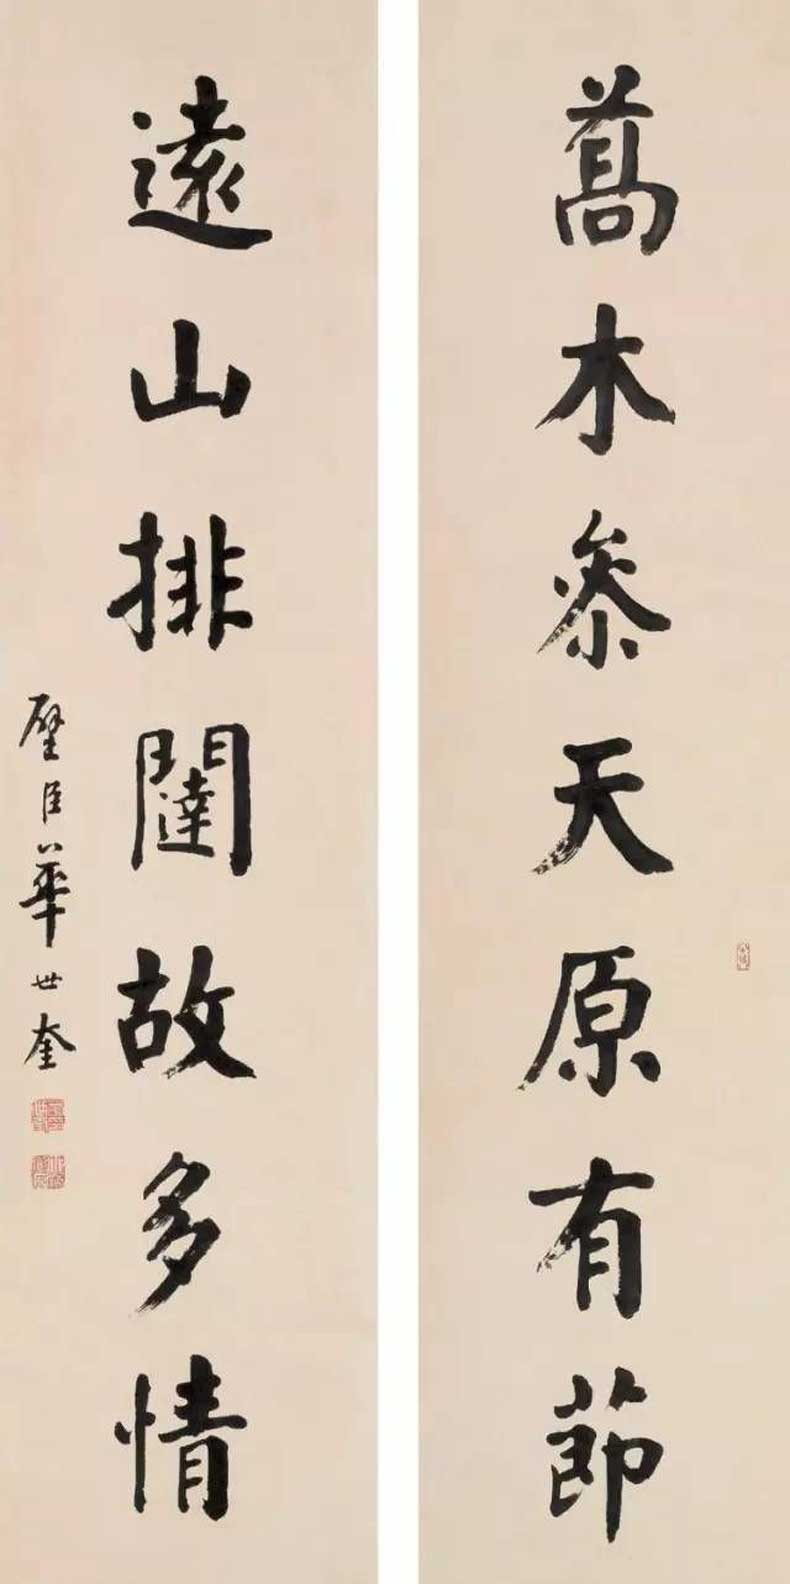 蒿木參天原有節
遠山排闥故多情
璧臣華世奎